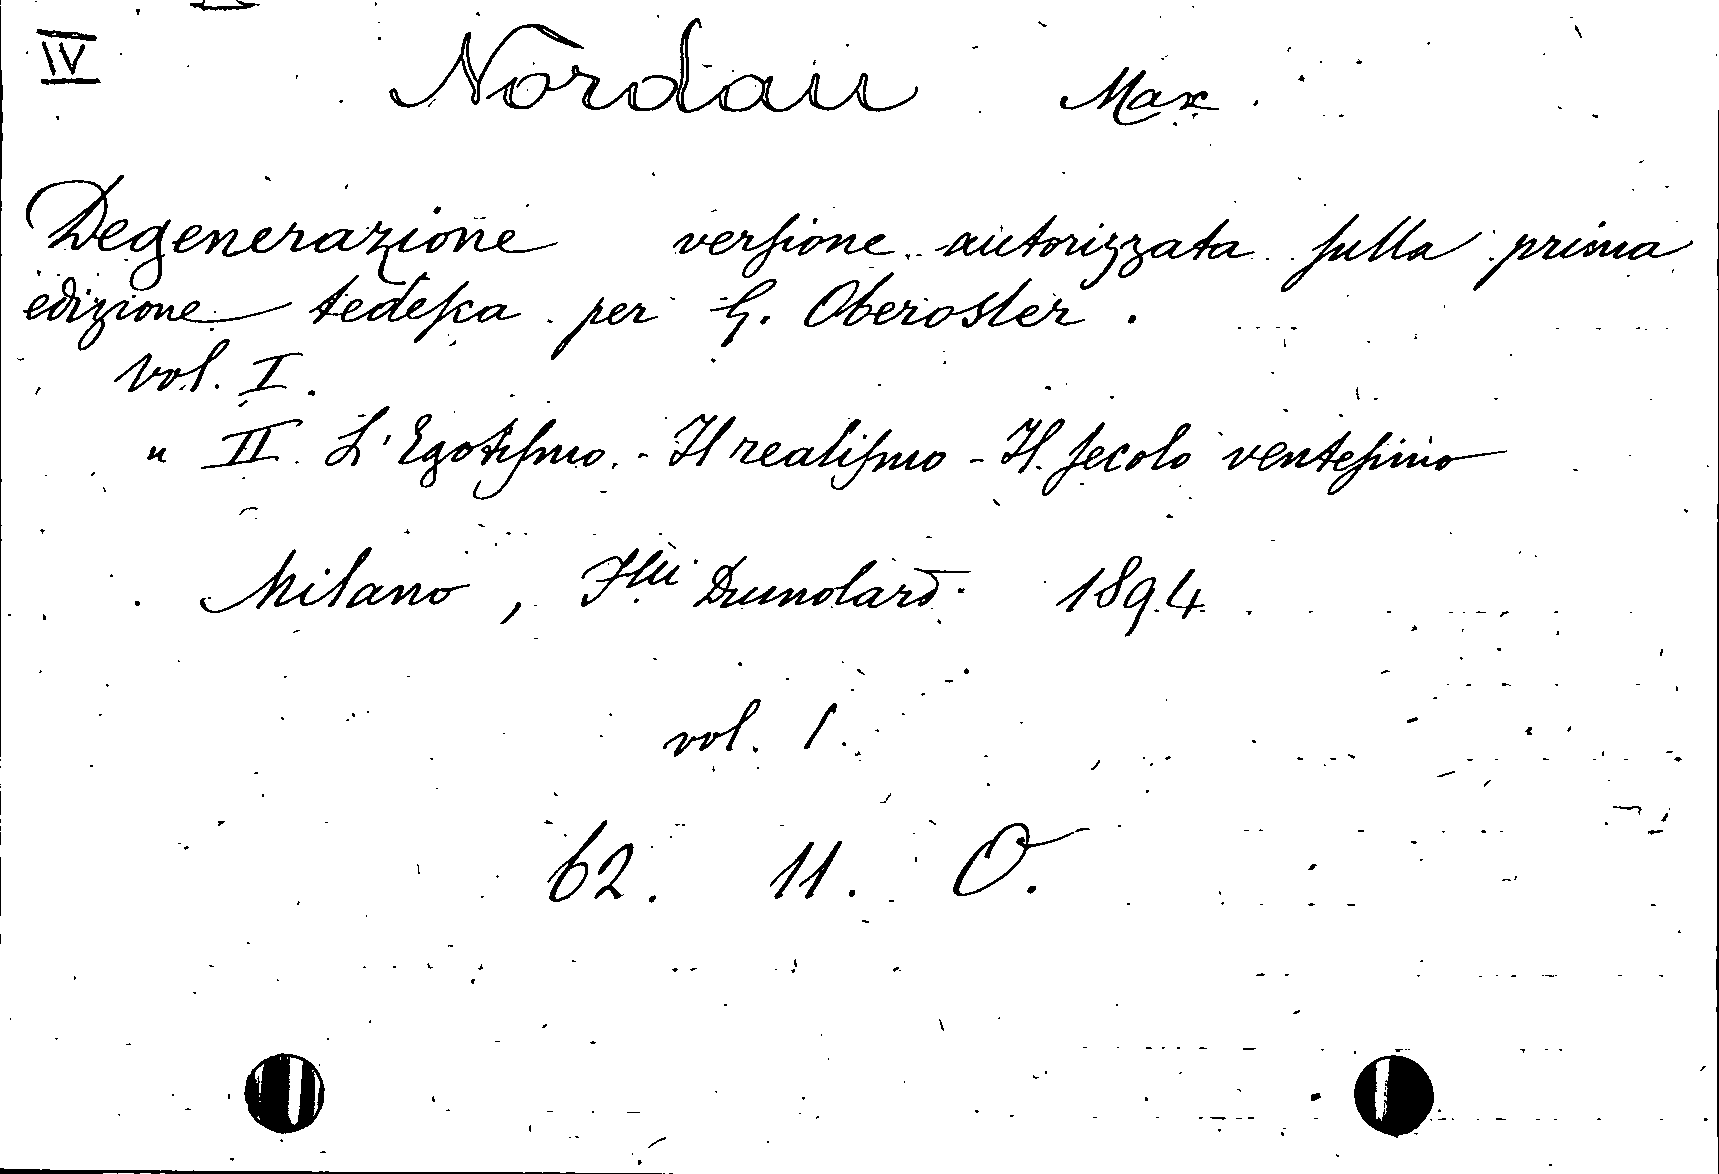 IV
Nordau Max.
Degenerazione versione autorizzata sulla prima
edizione tedesca per G. Oberosler.
vol. I.
" II. L'Egotismo. - Il realismo - Il secolo ventesimo
Milano, Flli Dumolard. 1894
vol. 1.
62. 11. O.